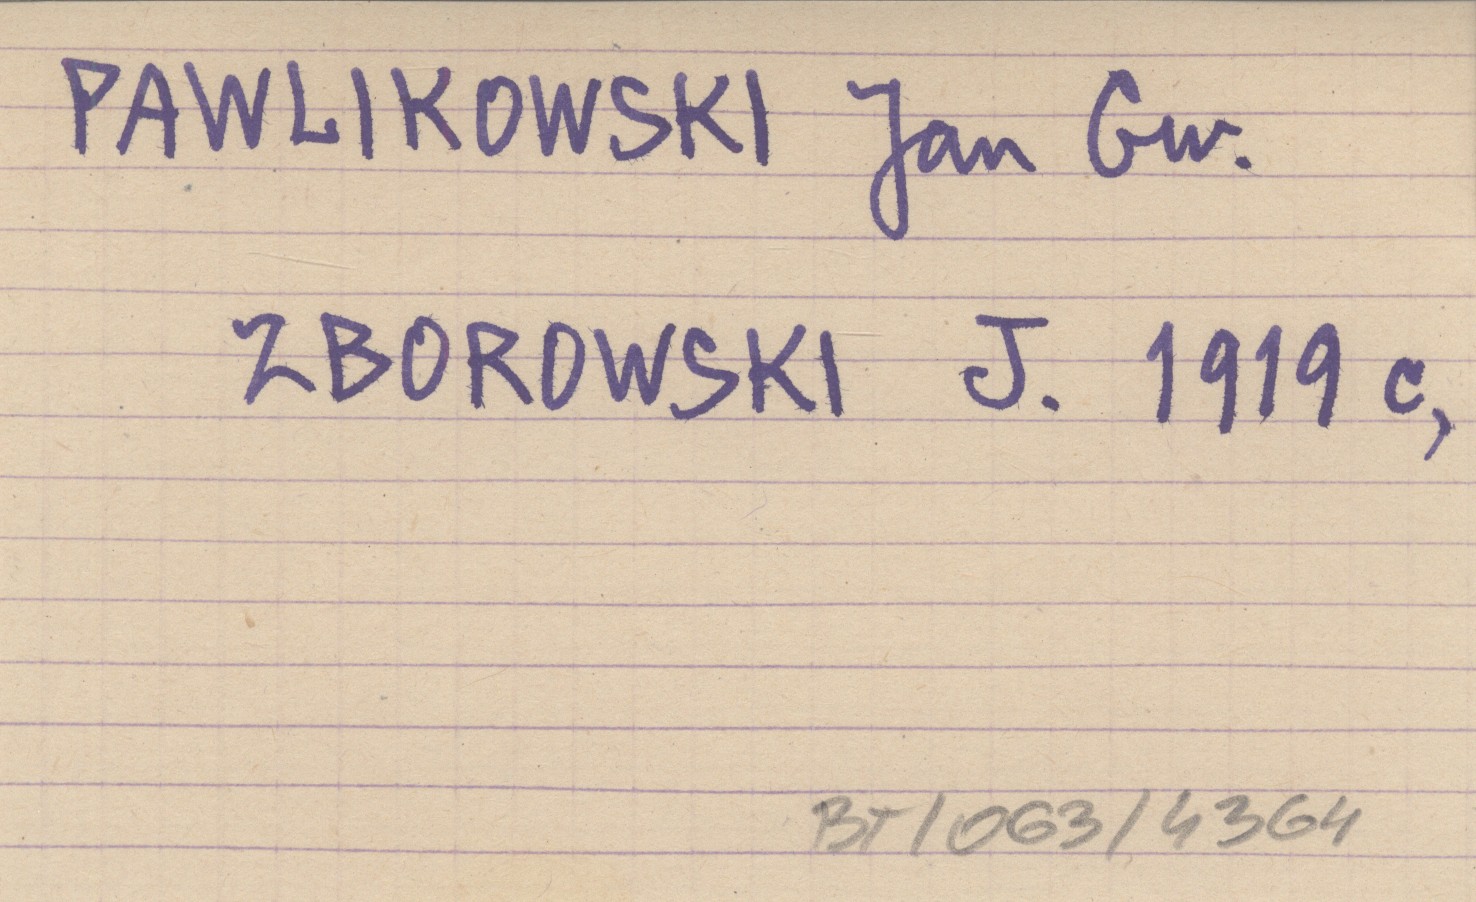 PAWLIKOWSKI Jan Gw.
ZBOROWSKI J. 1919 c,
BT/063/4364